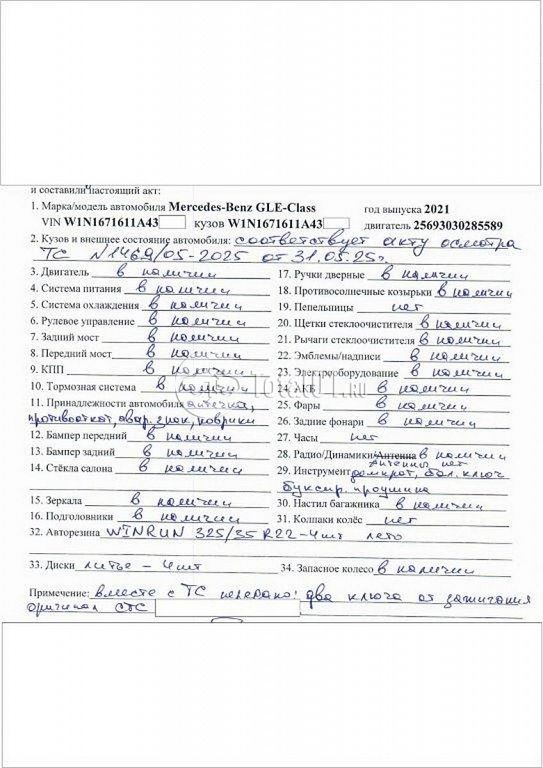 и составили настоящий акт:
1. Марка/модель автомобиля Mercedes-Benz GLE-Class год выпуска 2021
VIN W1N1671611A43 кузов W1N1671611A43 двигатель 25693030285589
2. Кузов и внешнее состояние автомобиля: соответствует акту осмотра
ТС №1469/05-2025 от 31.05.25г.
3. Двигатель в наличии 17. Ручки дверные в наличии
4. Система питания в наличии 18. Противосолнечные козырьки в наличии
5. Система охлаждения в наличии 19. Пепельницы нет
6. Рулевое управление в наличии 20. Щетки стеклоочистителя в наличии
7. Задний мост в наличии 21. Рычаги стеклоочистителя в наличии
8. Передний мост в наличии 22. Эмблемы/надписи в наличии
9. КПП в наличии 23. Электрооборудование в наличии
10. Тормозная система в наличии 24. АКБ в наличии
11. Принадлежности автомобиля аптечка, 25. Фары в наличии
противооткат, авар. знак, коврики 26. Задние фонари в наличии
12. Бампер передний в наличии 27. Часы нет
13. Бампер задний в наличии 28. Радио/Динамики/Антенна в наличии
Антенны нет
14. Стёкла салона в наличии 29. Инструмент домкрат, бал. ключ
буксир. проушина
15. Зеркала в наличии 30. Настил багажника в наличии
16. Подголовники в наличии 31. Колпаки колёс нет
32. Авторезина WINRUN 325/35 R22 - 4шт лето
33. Диски литье - 4шт 34. Запасное колесо в наличии
Примечание: вместе с ТС передано: два ключа от зажигания
оригинал СТС